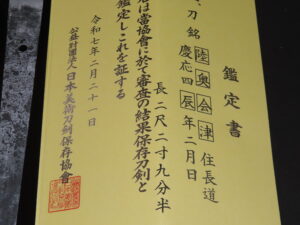 鑑定書
一、刀 銘 陸奥会津住長道
慶応四辰年二月日
長 二尺二寸九分半
は當協會に於て審査の結果保存刀剣と
鑑定しこれを証する
令和七年二月二十一日
公益財団法人 日本美術刀剣保存協會